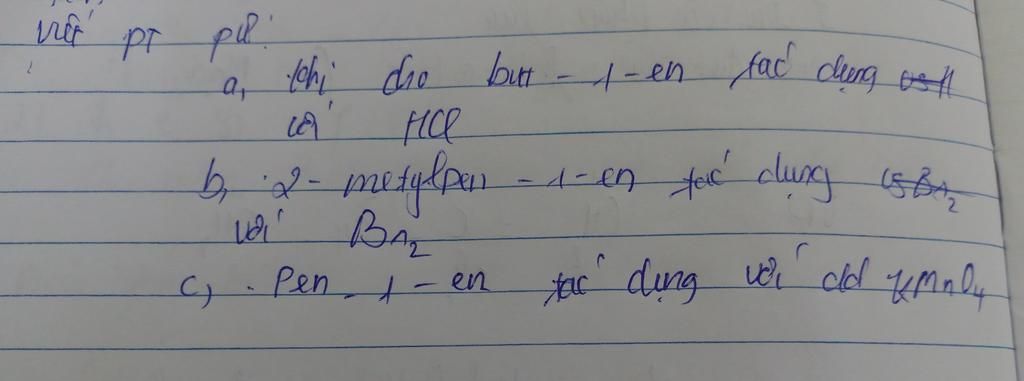 viết pt pứ:
a, khi cho but - 1 - en tác dụng
với HCl
b, 2 - metylpen - 1 - en tác dụng
với Br2
c, . Pen - 1 - en tác dụng với dd KMnO4